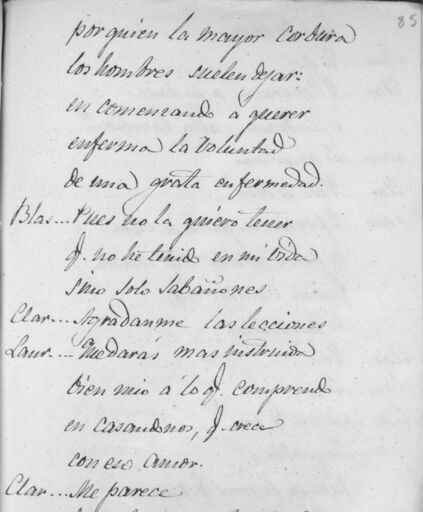 85
por quien la mayor cordura
los hombres suelen dejar:
en comenzando á querer
enferma la voluntad
de una grata enfermedad.
Blas... Pues no la quiero tener
q. no he tenido en mi vida
sino solo sabañones
Clar... Agradanme las lecciones
Laur... Quedarás mas instruida
bien mio á lo q. comprendo
en casandonos, q. crece
con eso amor.
Clar... Me parece